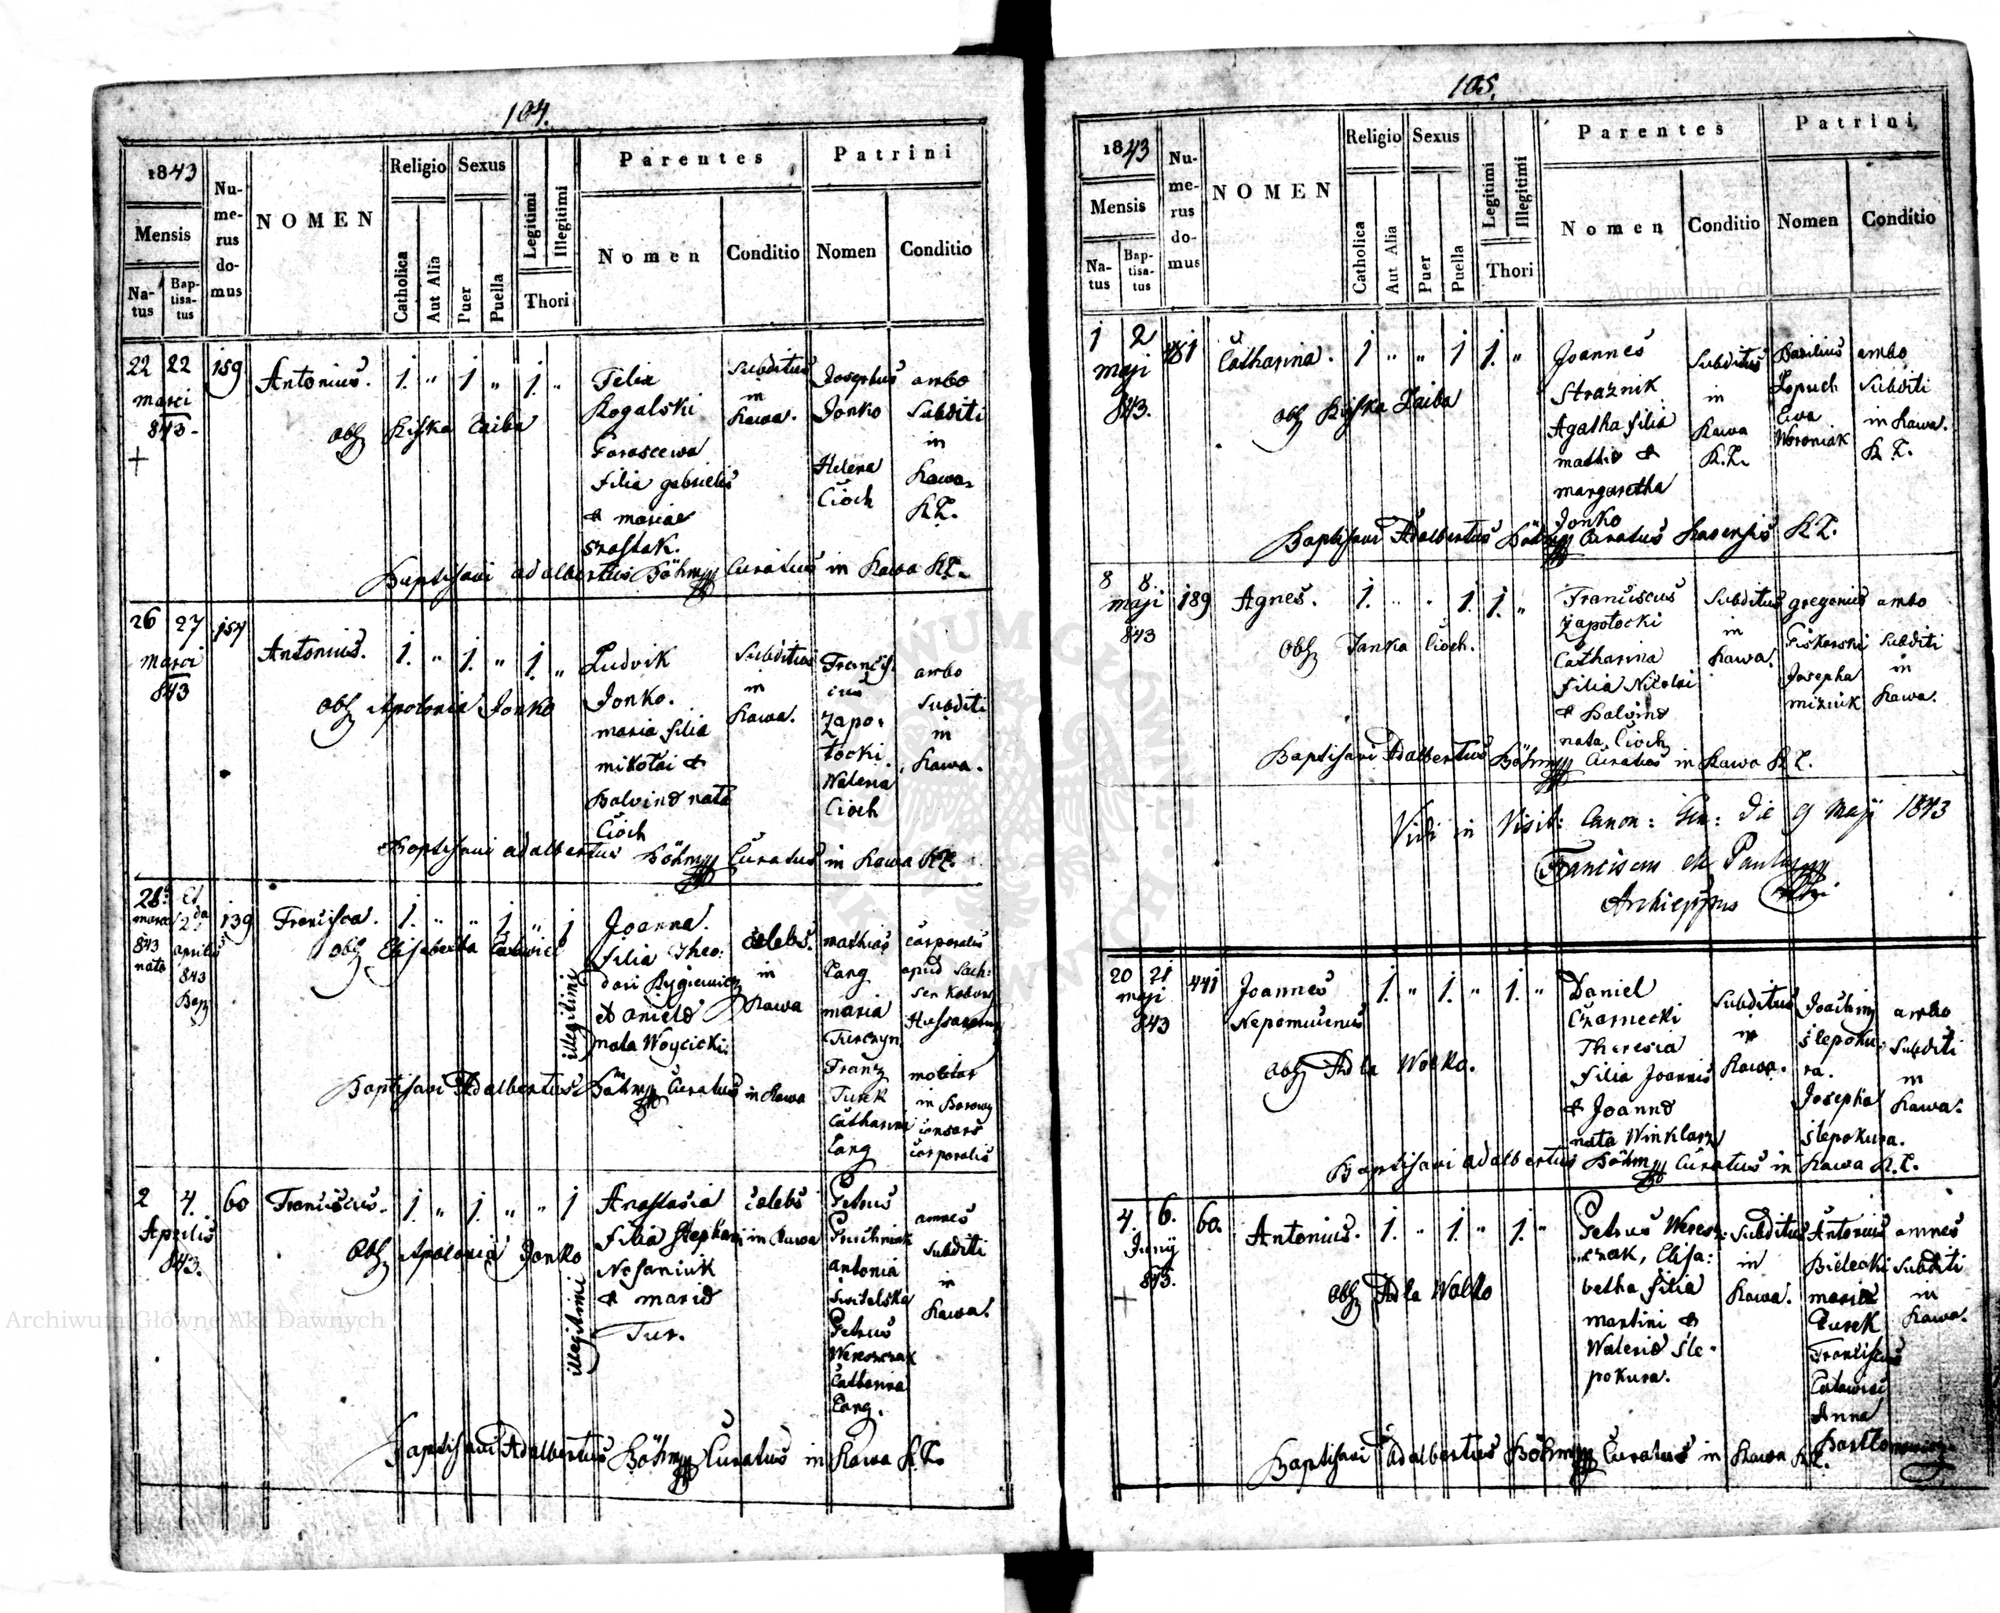 104.
1843
Mensis
Natus
Baptisatus
Numerus domus
NOMEN
Religio
Catholica
Aut Alia
Sexus
Puer
Puella
Legitimi
Illegitimi
Thori
Parentes
Nomen
Conditio
Patrini
Nomen
Conditio
22 22 159 Antonius. 1. " 1 " 1. "
marci
843.
Obs Kiska Caiba
Felix
Rogalski
Parascewa
filia gabrielis
& mariae
Szostak.
Subditus
in
Rawa.
Josephus
Jonko
Helena
Cioch
ambo
Subditi
in
Rawa
R.L.
Baptisavi adalbertus Böhm Curatus in Rawa R.L.
26 27 157 Antonius. 1. " 1. " 1. "
marci
843
Obs Apolonia Jonko
Ludvik
Jonko.
maria filia
mikołai &
Balvina nata
Cioch
Subditus
in
Rawa.
Francis
cus
Zapo.
tocki.
Waleria
Cioch
ambo
Subditi
in
Rawa.
Baptisavi adalbertus Böhm Curatus in Rawa R.L.
139 Francisca. 1. " " 1 " 1
marci
843
nata
2da
aprilis
843
Bap
Obs Elisabetha
illegitimi
Joanna
filia Theo:
dori
nata Woycicki.
in
Rawa
mathias
Lang
maria
Turczyn
Franz
Turek
Catharina
Lang
corporalis
apud Sach:
molitor
in
corporalis
Baptisavi Adalbertus Böhm Curatus in Rawa
2 4. 60 Franciscus. 1. " 1. " " 1
Aprilis
843.
Obs Apolonia Jonko
illegitimi
Anastasia
filia Stephani
& maria
Tur.
celebs
in Rawa
Petrus
antonia
Petrus
Wereszczak
Catharina
Lang.
omnes
Subditi
in
Rawa.
Baptisavi Adalbertus Böhm Curatus in Rawa R.L.
105.
1843
Mensis
Natus
Baptisatus
Numerus domus
NOMEN
Religio
Catholica
Aut Alia
Sexus
Puer
Puella
Legitimi
Illegitimi
Thori
Parentes
Nomen
Conditio
Patrini
Nomen
Conditio
1 2 Catharina. 1 " " 1 1. "
maji
843.
Obs Kiska Zaiba
Joannes
Strażnik
Agatha filia
&
margaretha
Jonko
Subditus
in
Rawa
R.L.
Basilius
Lopuch
Ewa
Woroniak
ambo
Subditi
in Rawa.
R.L.
Baptisavi Adalbertus Böhm Curatus Ravensis R.L.
8 8. 189 Agnes. 1. " " 1. 1. "
maji
843
Obs Janka Cioch.
Franciscus
Zapotocki
Catharina
filia Nicolai
& Balvina
nata Cioch
Subditus
in
Rawa.
gregorius
Josepha
ambo
Subditi
in
Rawa.
Baptisavi Adalbertus Böhm Curatus in Rawa R.L.
Vidi in Visit: Canon: Gen: die 9 Maji 1843
Franciscus de Paula
Archieppus
20 21 441 Joannes 1. " 1. " 1. "
maji Nepomucenus
843
Obs Adla Wolko.
Daniel
Czarnecki
Theresia
filia Joannis
& Joanna
nata Winklarz
Subditus
in
Rawa.
Joachim
Slepoku:
ra.
Josepha
Slepokura.
ambo
Subditi
in
Rawa.
Baptisavi adalbertus Böhm Curatus in Rawa R.L.
4. 6. 60. Antonius. 1. " 1. " 1. "
Juny
843.
Obs Adla Wolko
Petrus Weresz:
czak, Elisa:
betha filia
martini &
Waleria Sle:
pokura.
Subditus
in
Rawa.
Antonius
Bielecki
maria
Turek
Franciscus
Anna
omnes
Subditi
in
Rawa.
Baptisavi Adalbertus Böhm Curatus in Rawa R.L.
Archiwum Główne Akt Dawnych
Archiwum Główne Akt Dawnych